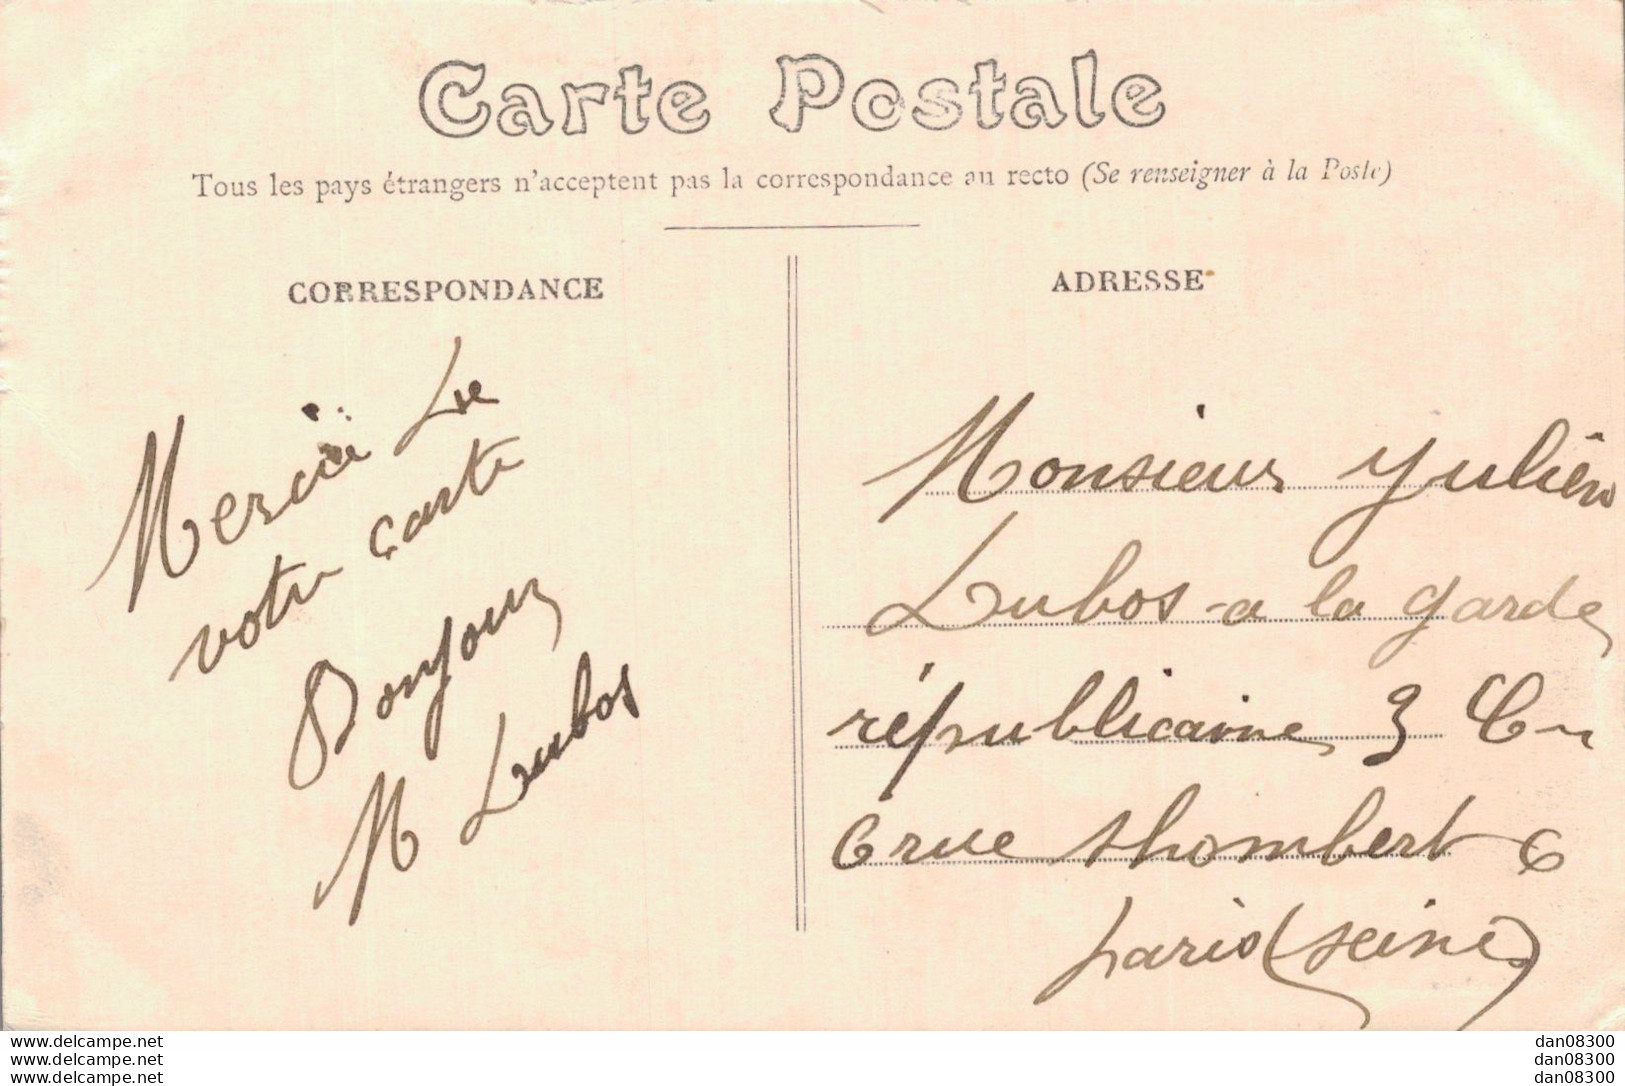 Carte Postale
Tous les pays étrangers n'acceptent pas la correspondance au recto (Se renseigner à la Poste)
CORRESPONDANCE
Mercii de
votre carte
Bonjour
M Lubos
ADRESSE
Monsieur Julien
Lubos a la garde
républicaine 3 Cn
6 rue shombert 6
paris (seine)
www.delcampe.net
www.delcampe.net
www.delcampe.net
dan08300
dan08300
dan08300